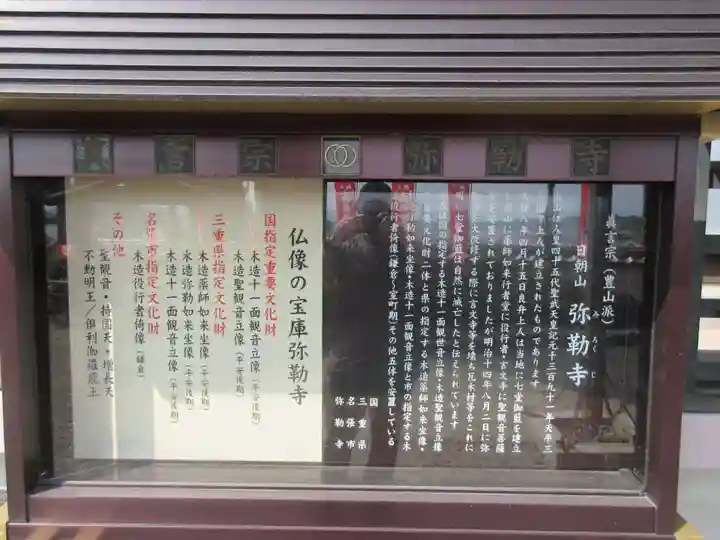 言宗 弥勒寺
眞言宗(豊山派)
日朝山 弥勒寺
みろくじ
四十五代聖武天皇記元千三百九十一年天平三
上人が建立されたものであります
八年四月十五日良弁上人は当地に七堂伽藍を建立
山に薬師如来行者堂に役行者・言文寺に聖観音菩薩
と安置されておりましたが明治十四年八月二日に弥
を大改修する際に言文寺等を壊ち瓦木材等をこれに
し七堂伽藍は自然に滅亡したと伝えられています
は国の指定する木造十一面観世音立像・木造聖観音立像
要文化財二体と県の指定する木造薬師如来坐像・
勒如来坐像・木造十一面観音立像と市の指定する木
造役行者倚像(鎌倉〜室町期)その他五体を安置している
国
三重県
名張市
弥勒寺
仏像の宝庫弥勒寺
国指定重要文化財
木造十一面観音立像(平安後期)
木造聖観音立像(平安後期)
三重県指定文化財
木造薬師如来坐像(平安後期)
木造弥勒如来坐像(平安後期)
木造十一面観音立像(平安後期)
名張市指定文化財
木造役行者倚像(鎌倉)
その他
聖観音・持国天・増長天
不動明王/倶利伽羅龍王